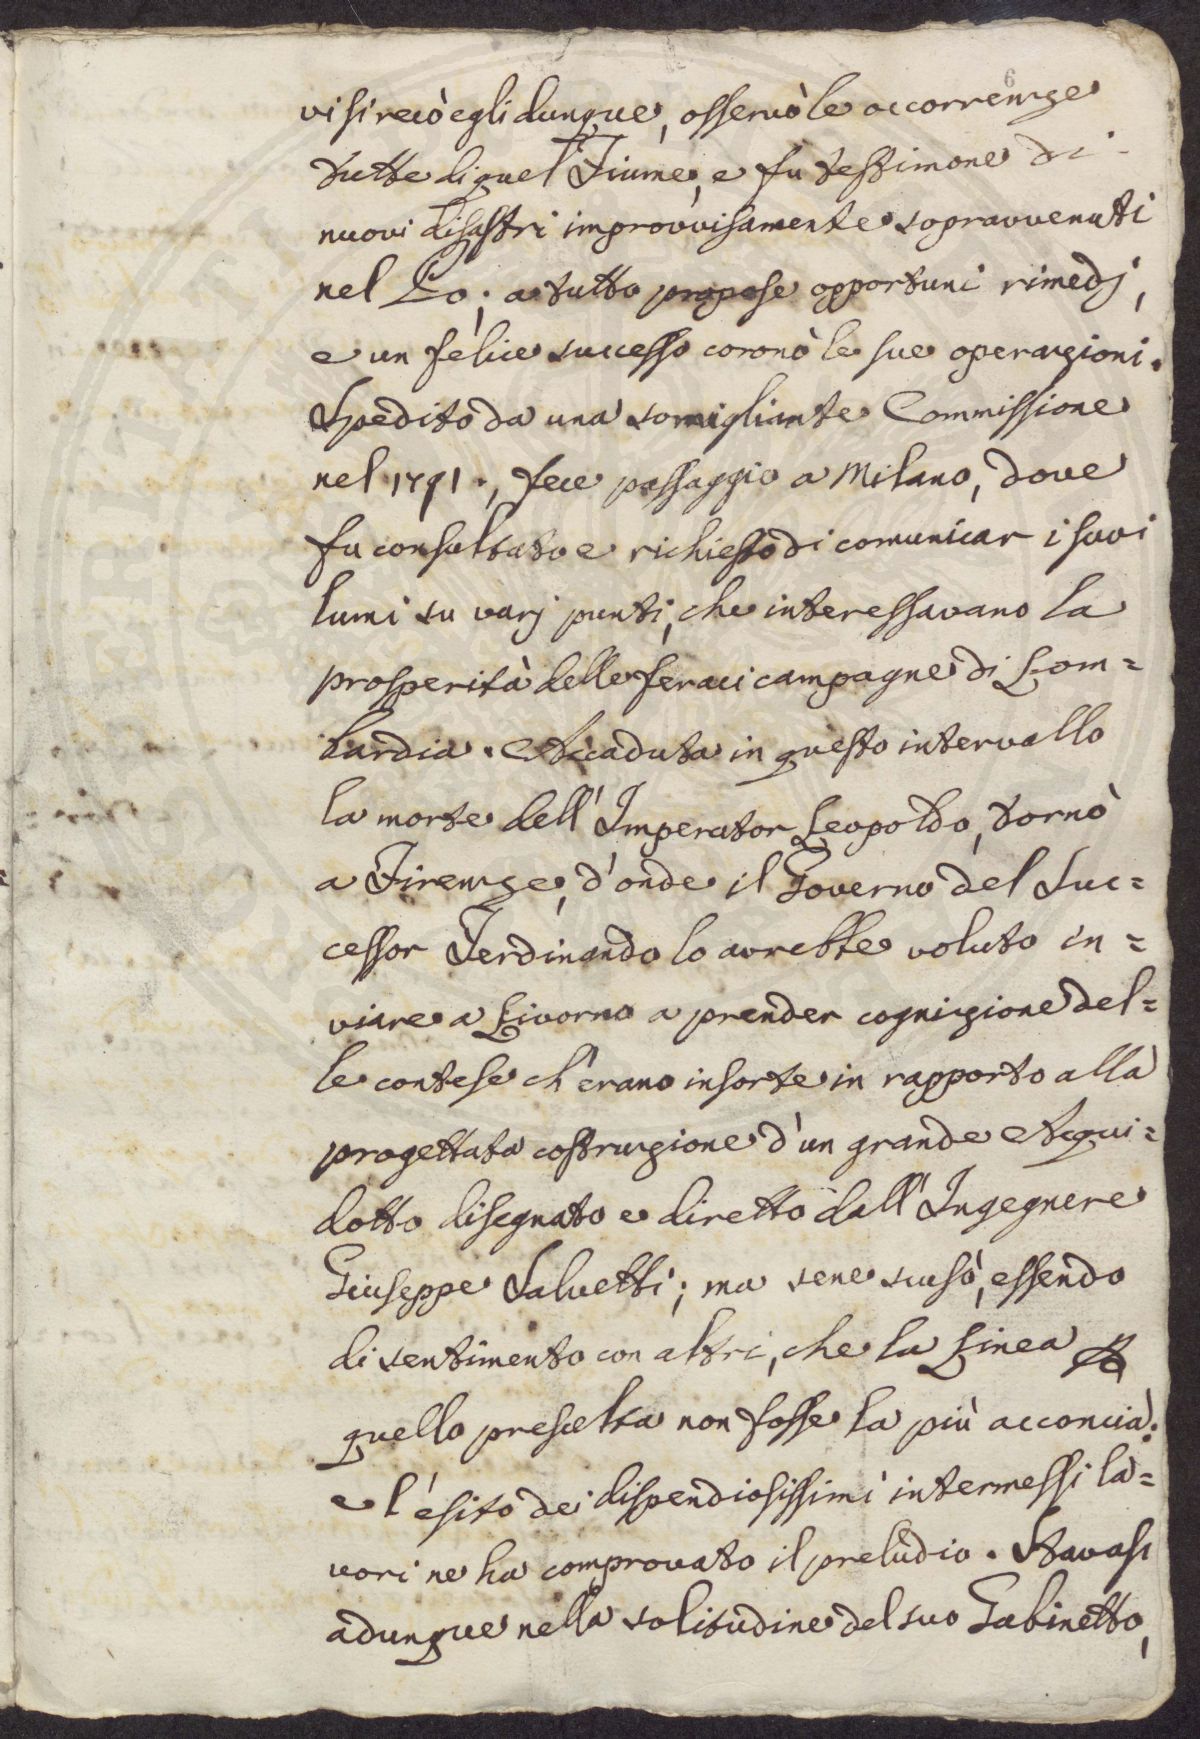 6
vi si recò egli dunque, osservò le occorrenze
tutte di quel Fiume, e fu testimone di
nuovi disastri improvvisamente sopravvenuti
nel Po; a tutto propose opportuni rimedj,
e un felice successo coronò le sue operazioni.
Spedito da una somigliante Commissione
nel 1791., fece passaggio a Milano, dove
fu consultato e richiesto di comunicar i suoi
lumi su varj punti, che interessavano la
prosperità delle feraci campagne di Lom=
bardia. Accaduta in questo intervallo
la morte dell'Imperator Leopoldo, tornò
a Firenze, d'onde il Governo del Suc=
cessor Ferdinando lo avrebbe voluto in=
viare a Livorno a prender cognizione del=
le contese ch'erano insorte in rapporto alla
progettata costruzione d'un grande Aqui=
dotto disegnato e diretto dall'Ingegnere
Giuseppe Salvetti; ma sene scusò, essendo
di sentimento con altri, che la Linea
quello prescelta non fosse la più acconcia:
e l'esito dei dispendiosissimi intermessi la=
vori ne ha comprovato il preludio. Stavasi
adunque nella solitudine del suo Gabinetto,